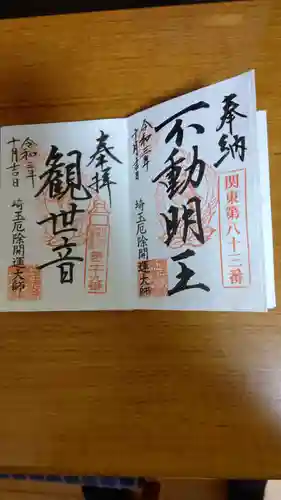 奉納
関東第八十三番
不動明王
令和三年
十月吉日
埼玉厄除開運大師
奉拝
観世音
令和三年
十月吉日
埼玉厄除開運大師